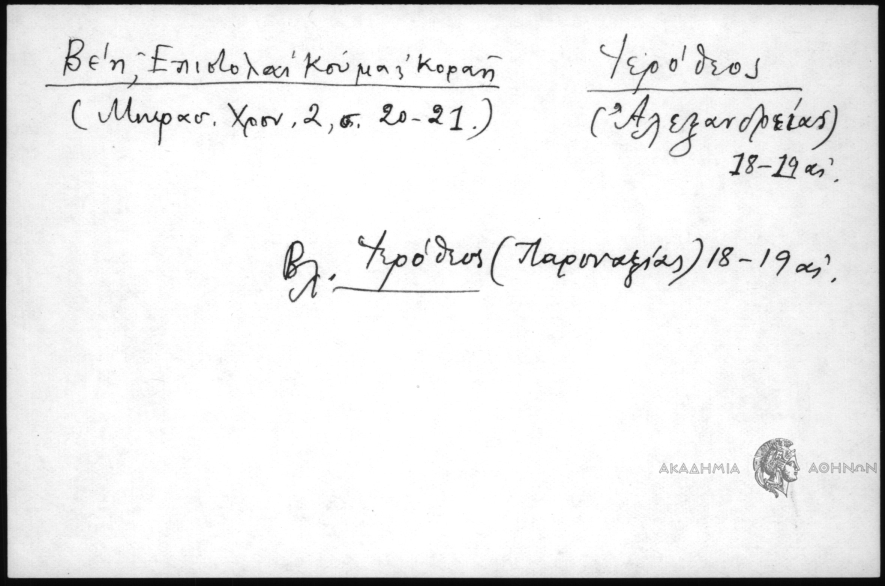 Βέη, Ἐπιστολαὶ Κούμα κ' Κοραῆ
(Μικρασ. Χρον. 2, σ. 20-21.)
Ἱερόθεος
(Ἀλεξανδρείας)
18-19 αἰ.
Βλ. Ἱερόθεος (Παροναξίας) 18-19 αἰ.
ΑΚΑΔΗΜΙΑ ΑΘΗΝΩΝ